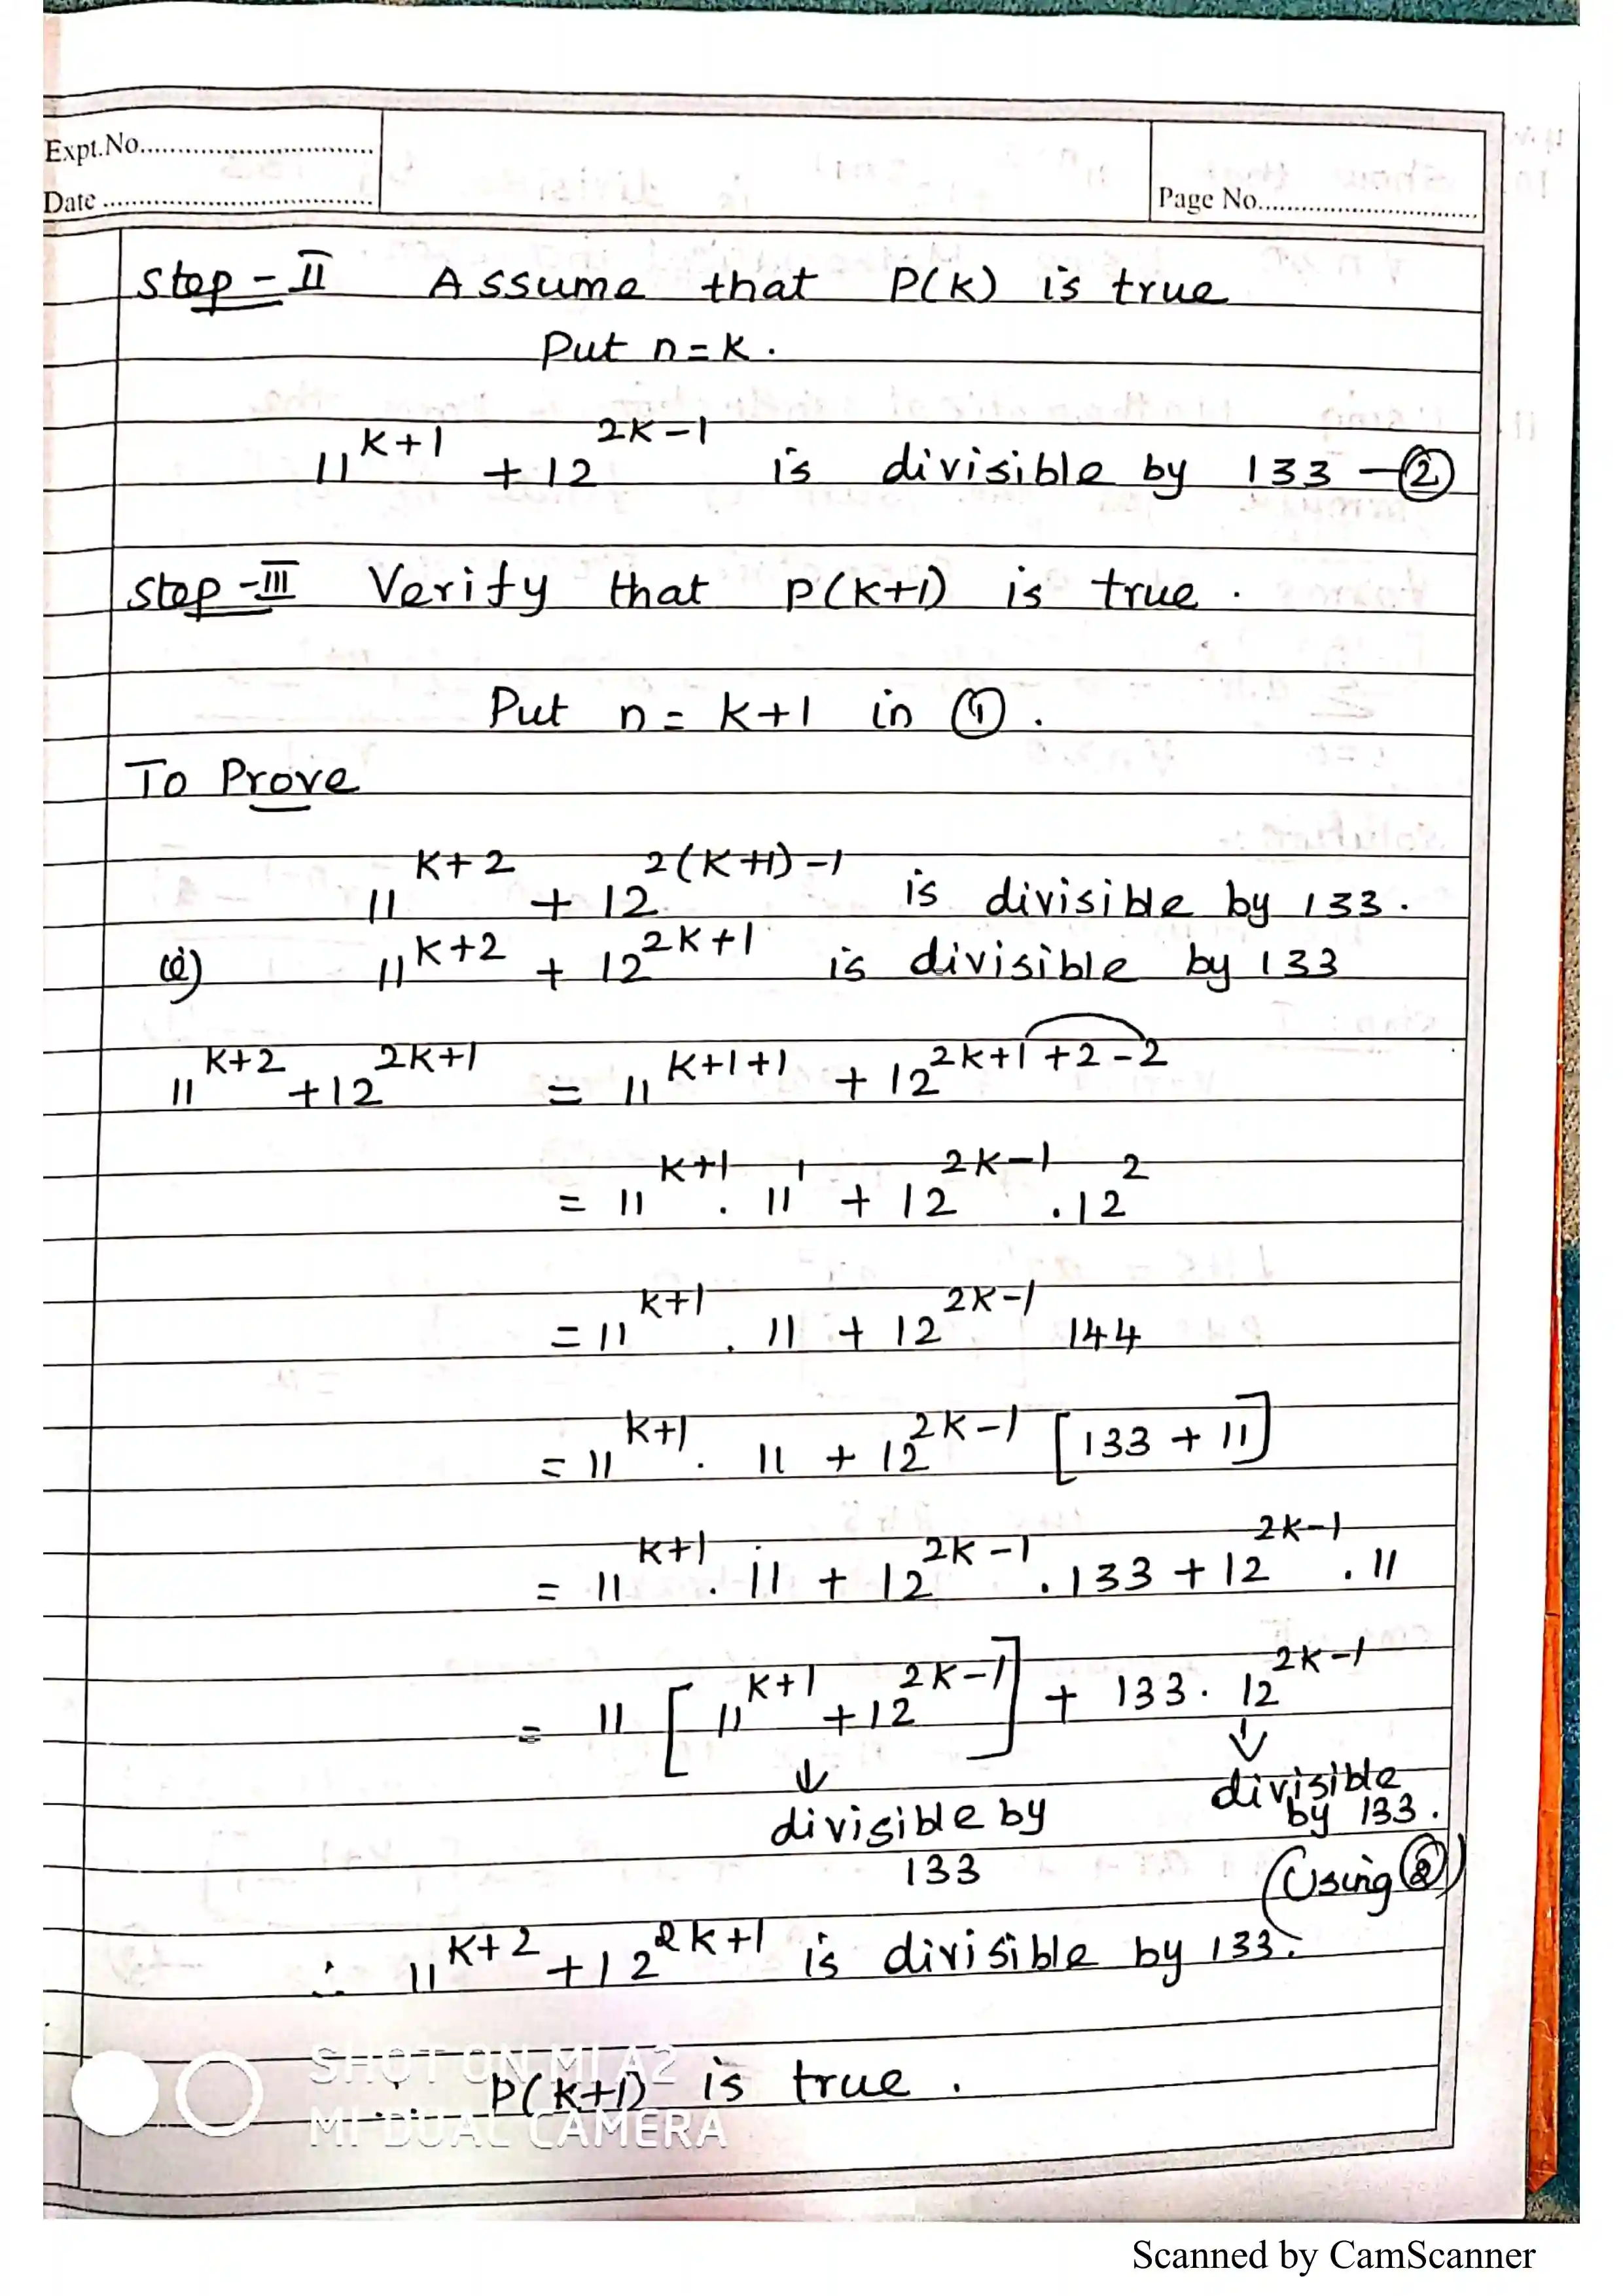 Expt.No..............................
Date ....................................
Page No..............................
Step - II Assume that P(K) is true
Put n = K .
11^{K+1} + 12^{2K-1} is divisible by 133 — ②
Step - III Verify that P(K+1) is true .
Put n = K+1 in ① .
To Prove
11^{K+2} + 12^{2(K+1)-1} is divisible by 133 .
(i) 11^{K+2} + 12^{2K+1} is divisible by 133
11^{K+2} + 12^{2K+1} = 11^{K+1+1} + 12^{2K+1+2-2}
= 11^{K+1} . 11^1 + 12^{2K-1} . 12^2
= 11^{K+1} . 11 + 12^{2K-1} 144
= 11^{K+1} . 11 + 12^{2K-1} [133 + 11]
= 11^{K+1} . 11 + 12^{2K-1} . 133 + 12^{2K-1} . 11
= 11 [11^{K+1} + 12^{2K-1}] + 133 . 12^{2K-1}
↓ ↓
divisible by 133 divisible by 133 .
(Using ②)
∴ 11^{K+2} + 12^{2K+1} is divisible by 133 .
∴ P(K+1) is true .
SHOT ON MI A2
MI DUAL CAMERA
Scanned by CamScanner